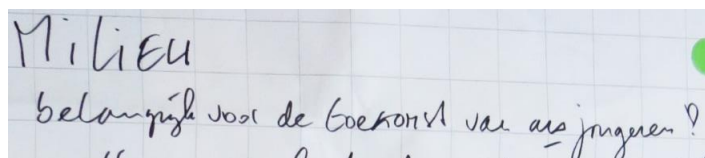 MiLiEU
belangrijk voor de toekomst van ons jongeren?